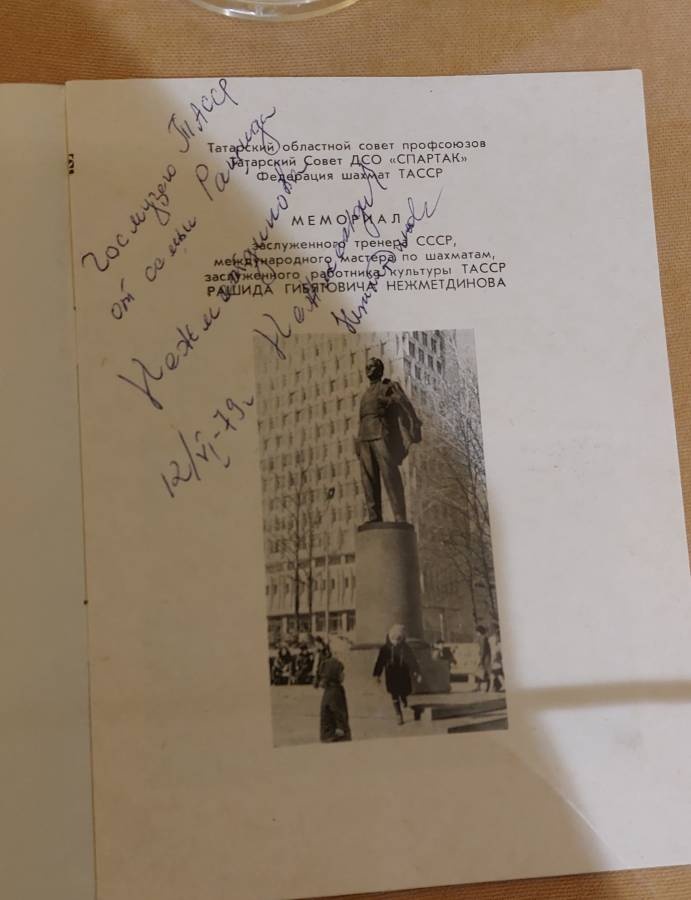 Госмузею ТАССР
от семьи Рашида
Нежметдинова
12/VI-79г.
Татарский областной совет профсоюзов
Татарский Совет ДСО «СПАРТАК»
Федерация шахмат ТАССР
МЕМОРИАЛ
заслуженного тренера СССР,
международного мастера по шахматам,
заслуженного работника культуры ТАССР
РАШИДА ГИБЯТОВИЧА НЕЖМЕТДИНОВА